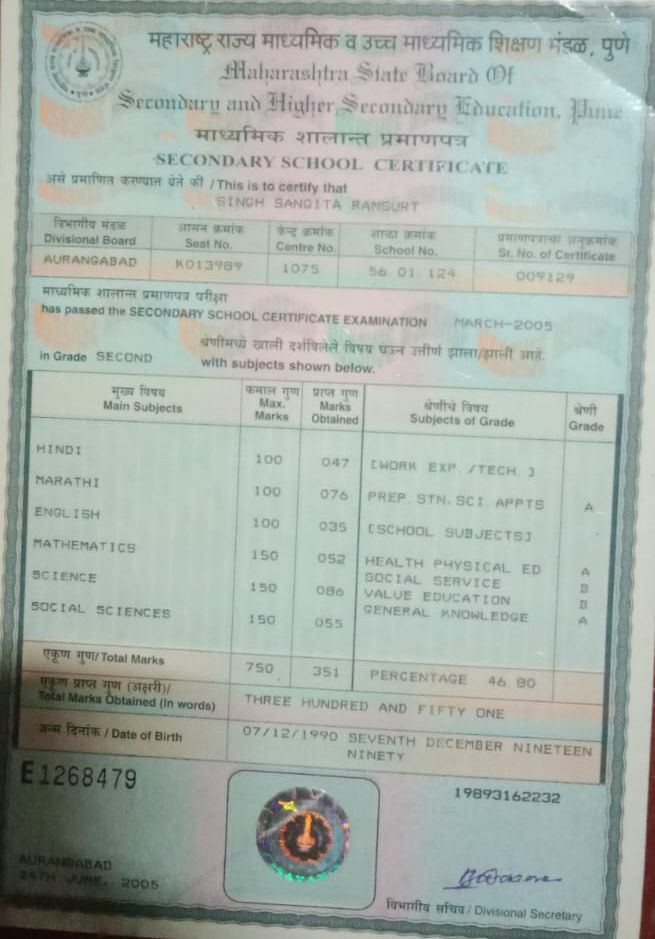 महाराष्ट्र राज्य माध्यमिक व उच्च माध्यमिक शिक्षण मंडळ, पुणे
Maharashtra State Board Of
Secondary and Higher Secondary Education, Pune
माध्यमिक शालान्त प्रमाणपत्र
SECONDARY SCHOOL CERTIFICATE
असे प्रमाणित करण्यात येते की / This is to certify that
SINGH SANGITA RAMSURT
विभागीय मंडळ आसन क्रमांक केन्द्र क्रमांक शाळा क्रमांक प्रमाणपत्राचा अनुक्रमांक
Divisional Board Seat No. Centre No. School No. Sr. No. of Certificate
AURANGABAD K013989 1075 56.01.124 009129
माध्यमिक शालान्त प्रमाणपत्र परीक्षा
has passed the SECONDARY SCHOOL CERTIFICATE EXAMINATION MARCH-2005
श्रेणीमध्ये खाली दर्शविलेले विषय घेऊन उत्तीर्ण झाला/झाली आहे.
in Grade SECOND with subjects shown below.
मुख्य विषय कमाल गुण प्राप्त गुण श्रेणीचे विषय श्रेणी
Main Subjects Max. Marks Marks Obtained Subjects of Grade Grade
HINDI 100 047 [WORK EXP. /TECH. ]
MARATHI 100 076 PREP. STN. SCI. APPTS A
ENGLISH 100 035 [SCHOOL SUBJECTS]
MATHEMATICS 150 052 HEALTH PHYSICAL ED A
SOCIAL SERVICE B
SCIENCE 150 086 VALUE EDUCATION B
GENERAL KNOWLEDGE A
SOCIAL SCIENCES 150 055
एकूण गुण/ Total Marks 750 351 PERCENTAGE 46.80
एकूण प्राप्त गुण (अक्षरी)/
Total Marks Obtained (In words) THREE HUNDRED AND FIFTY ONE
जन्म दिनांक / Date of Birth 07/12/1990 SEVENTH DECEMBER NINETEEN
NINETY
E1268479
19893162232
AURANGABAD
24TH JUNE, 2005
विभागीय सचिव / Divisional Secretary